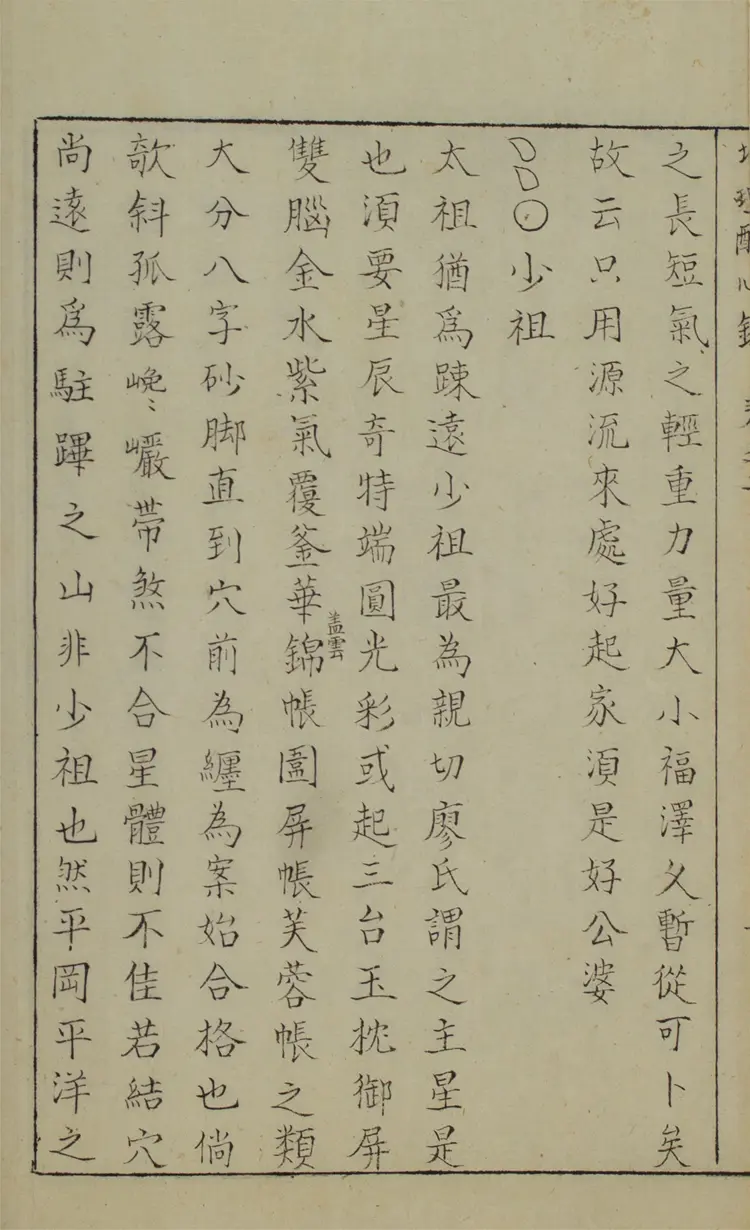 之長短氣之輕重力量大小福澤久暫從可卜矣
故云只用源流來處好起家須是好公婆
○少祖
太祖猶爲踈遠少祖最為親切廖氏謂之主星是
也須要星辰奇特端圓光彩或起三台玉枕御屏
雙腦金水紫氣覆釜華盖雲錦帳圖屏帳芙蓉帳之類
大分八字砂脚直到穴前為纏為案始合格也倘
欹斜孤露巉巖帶煞不合星體則不佳若結穴
尚遠則爲駐蹕之山非少祖也然平岡平洋之